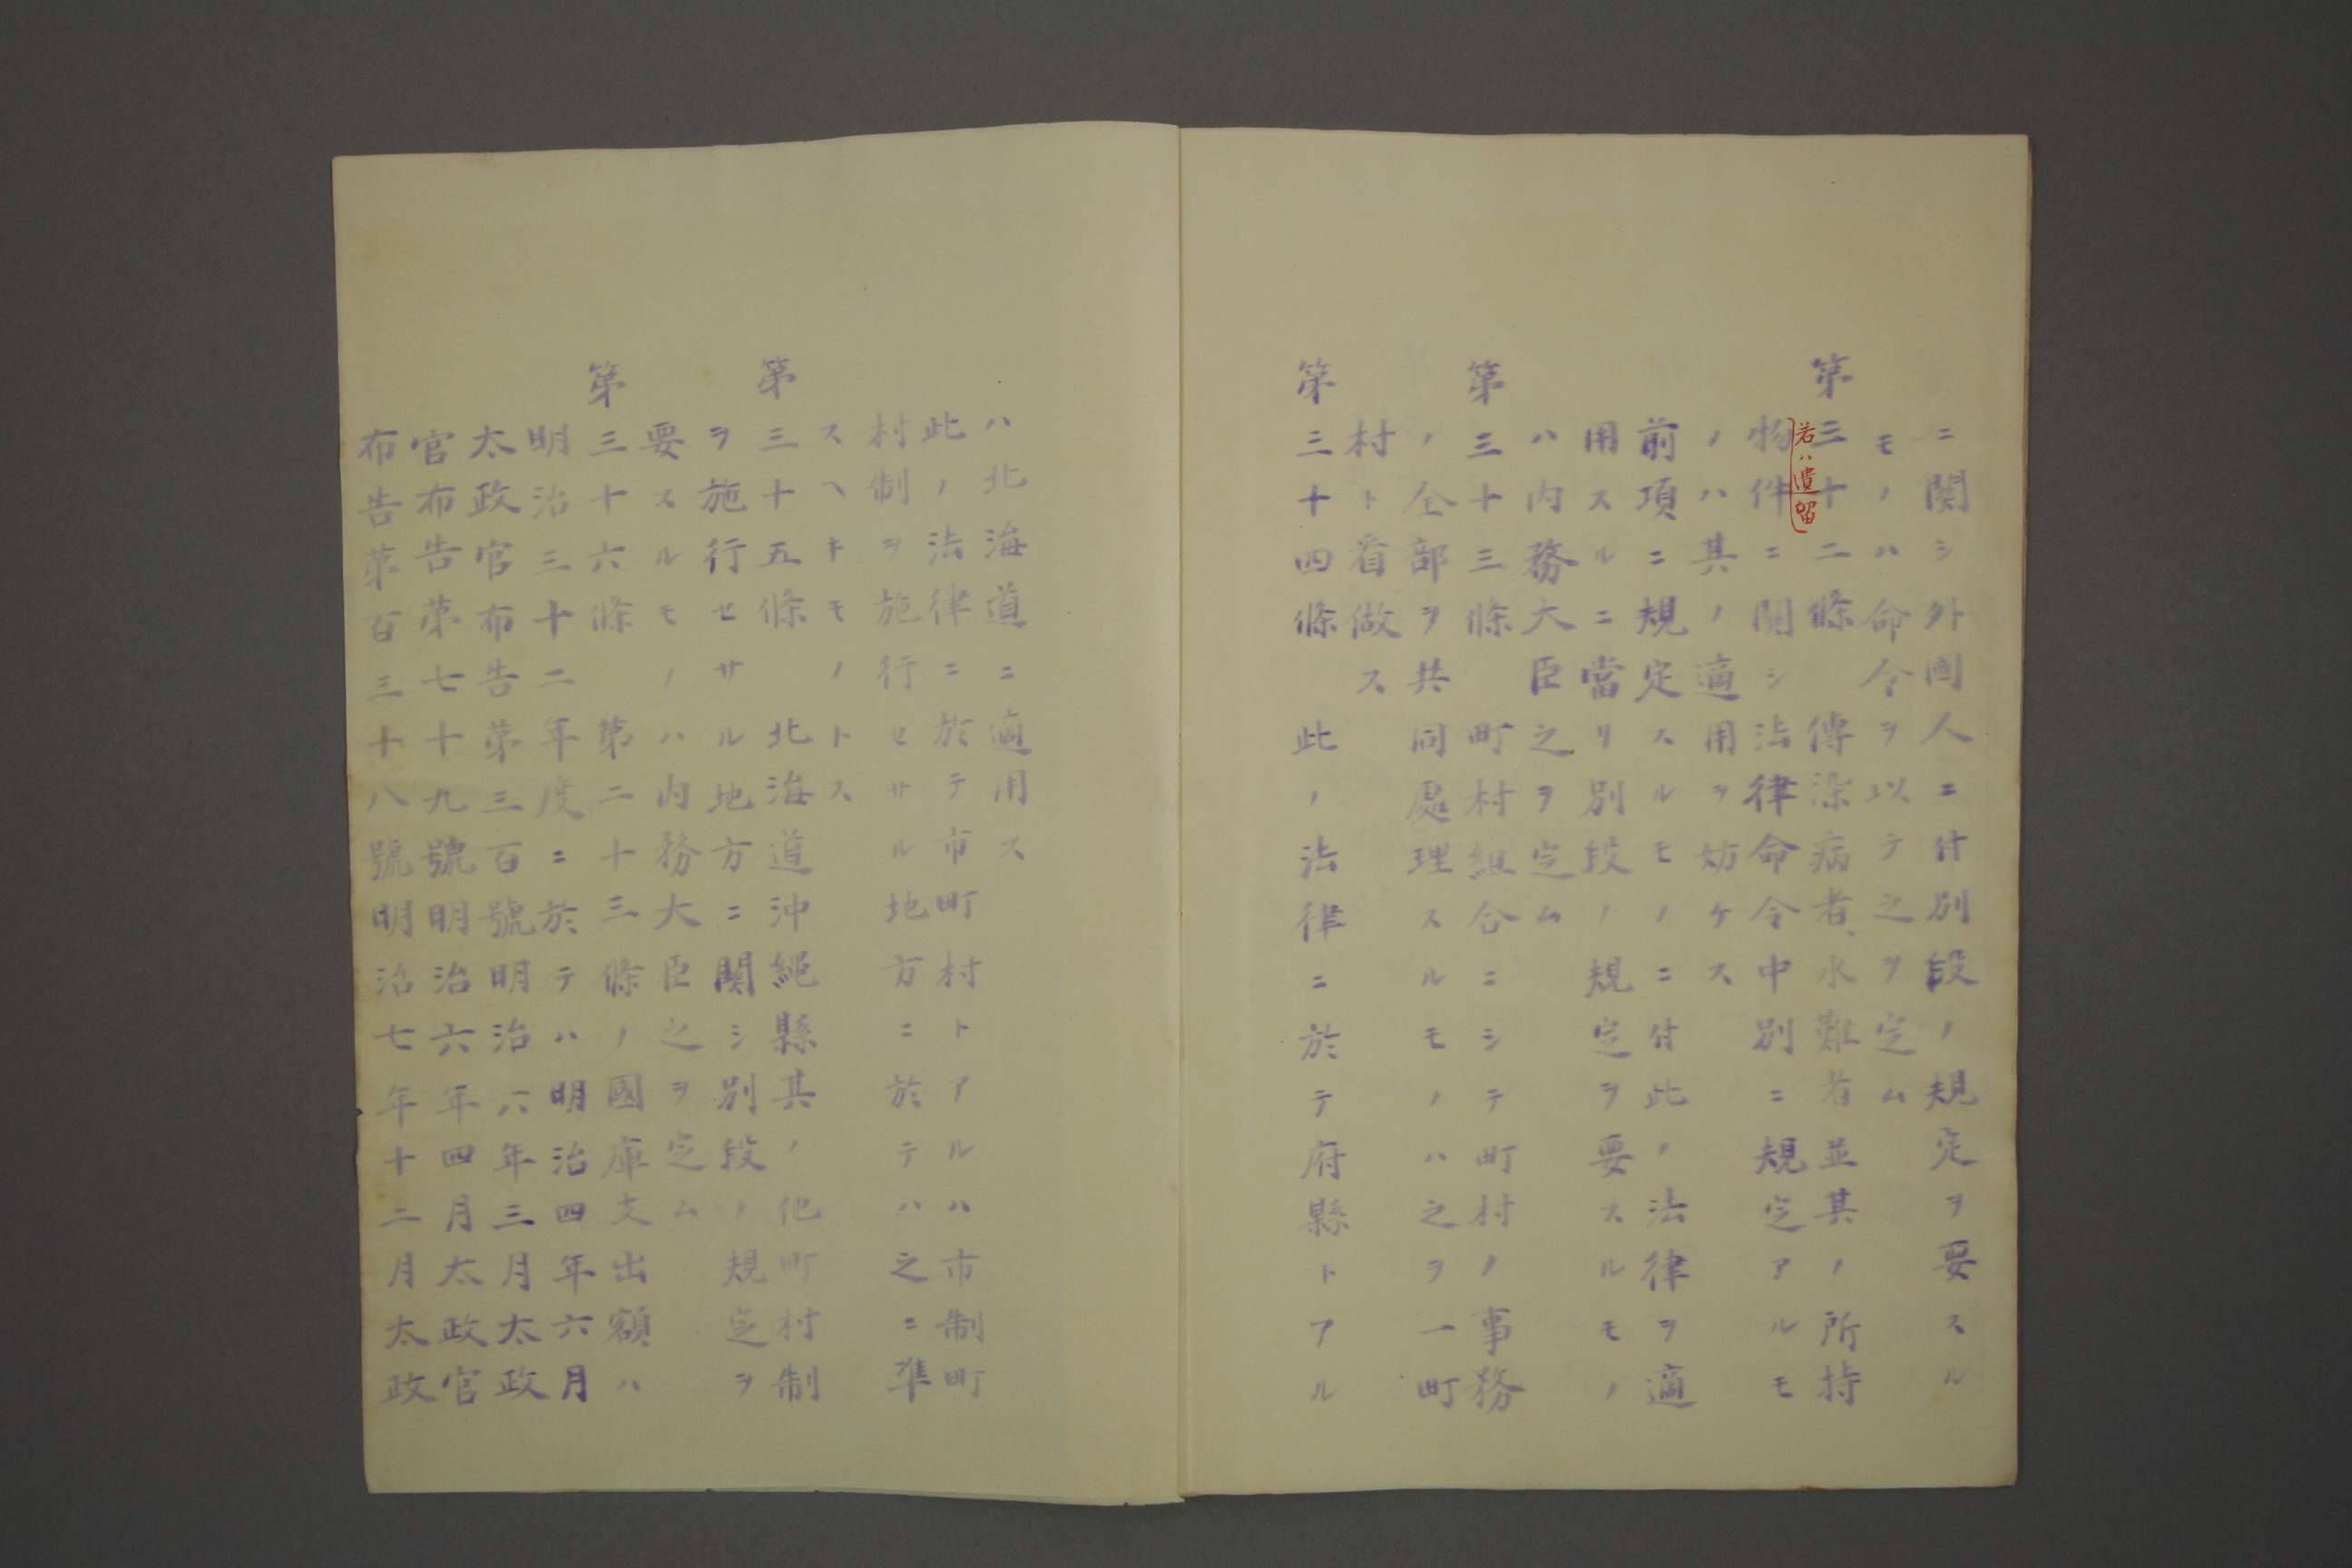 ニ関シ外國人ニ付別段ノ規定ヲ要スル
モノハ命令ヲ以テ之ヲ定ム
第三十二條　傳染病者、水難者並其ノ所持
若ハ遺留
物件ニ関シ法律命令中別ニ規定アルモ
ノハ其ノ適用ヲ妨ケス
前項ニ規定スルモノニ付此ノ法律ヲ適
用スルニ當リ別段ノ規定ヲ要スルモノ
ハ内務大臣之ヲ定ム
第三十三條　町村組合ニシテ町村ノ事務
ノ全部ヲ共同處理スルモノハ之ヲ一町
村ト看做ス
第三十四條　此ノ法律ニ於テ府縣トアル
ハ北海道ニ適用ス
此ノ法律ニ於テ市町村トアルハ市制町
村制ヲ施行セサル地方ニ於テハ之ニ準
スヘキモノトス
第三十五條　北海道沖縄縣其ノ他町村制
ヲ施行セサル地方ニ関シ別段ノ規定ヲ
要スルモノハ内務大臣之ヲ定ム
第三十六條　第二十三條ノ國庫支出額ハ
明治三十二年度ニ於テハ明治四年六月
太政官布告第三百號明治六年三月太政
官布告第七十九號明治六年四月太政官
布告第百三十八號明治七年十二月太政